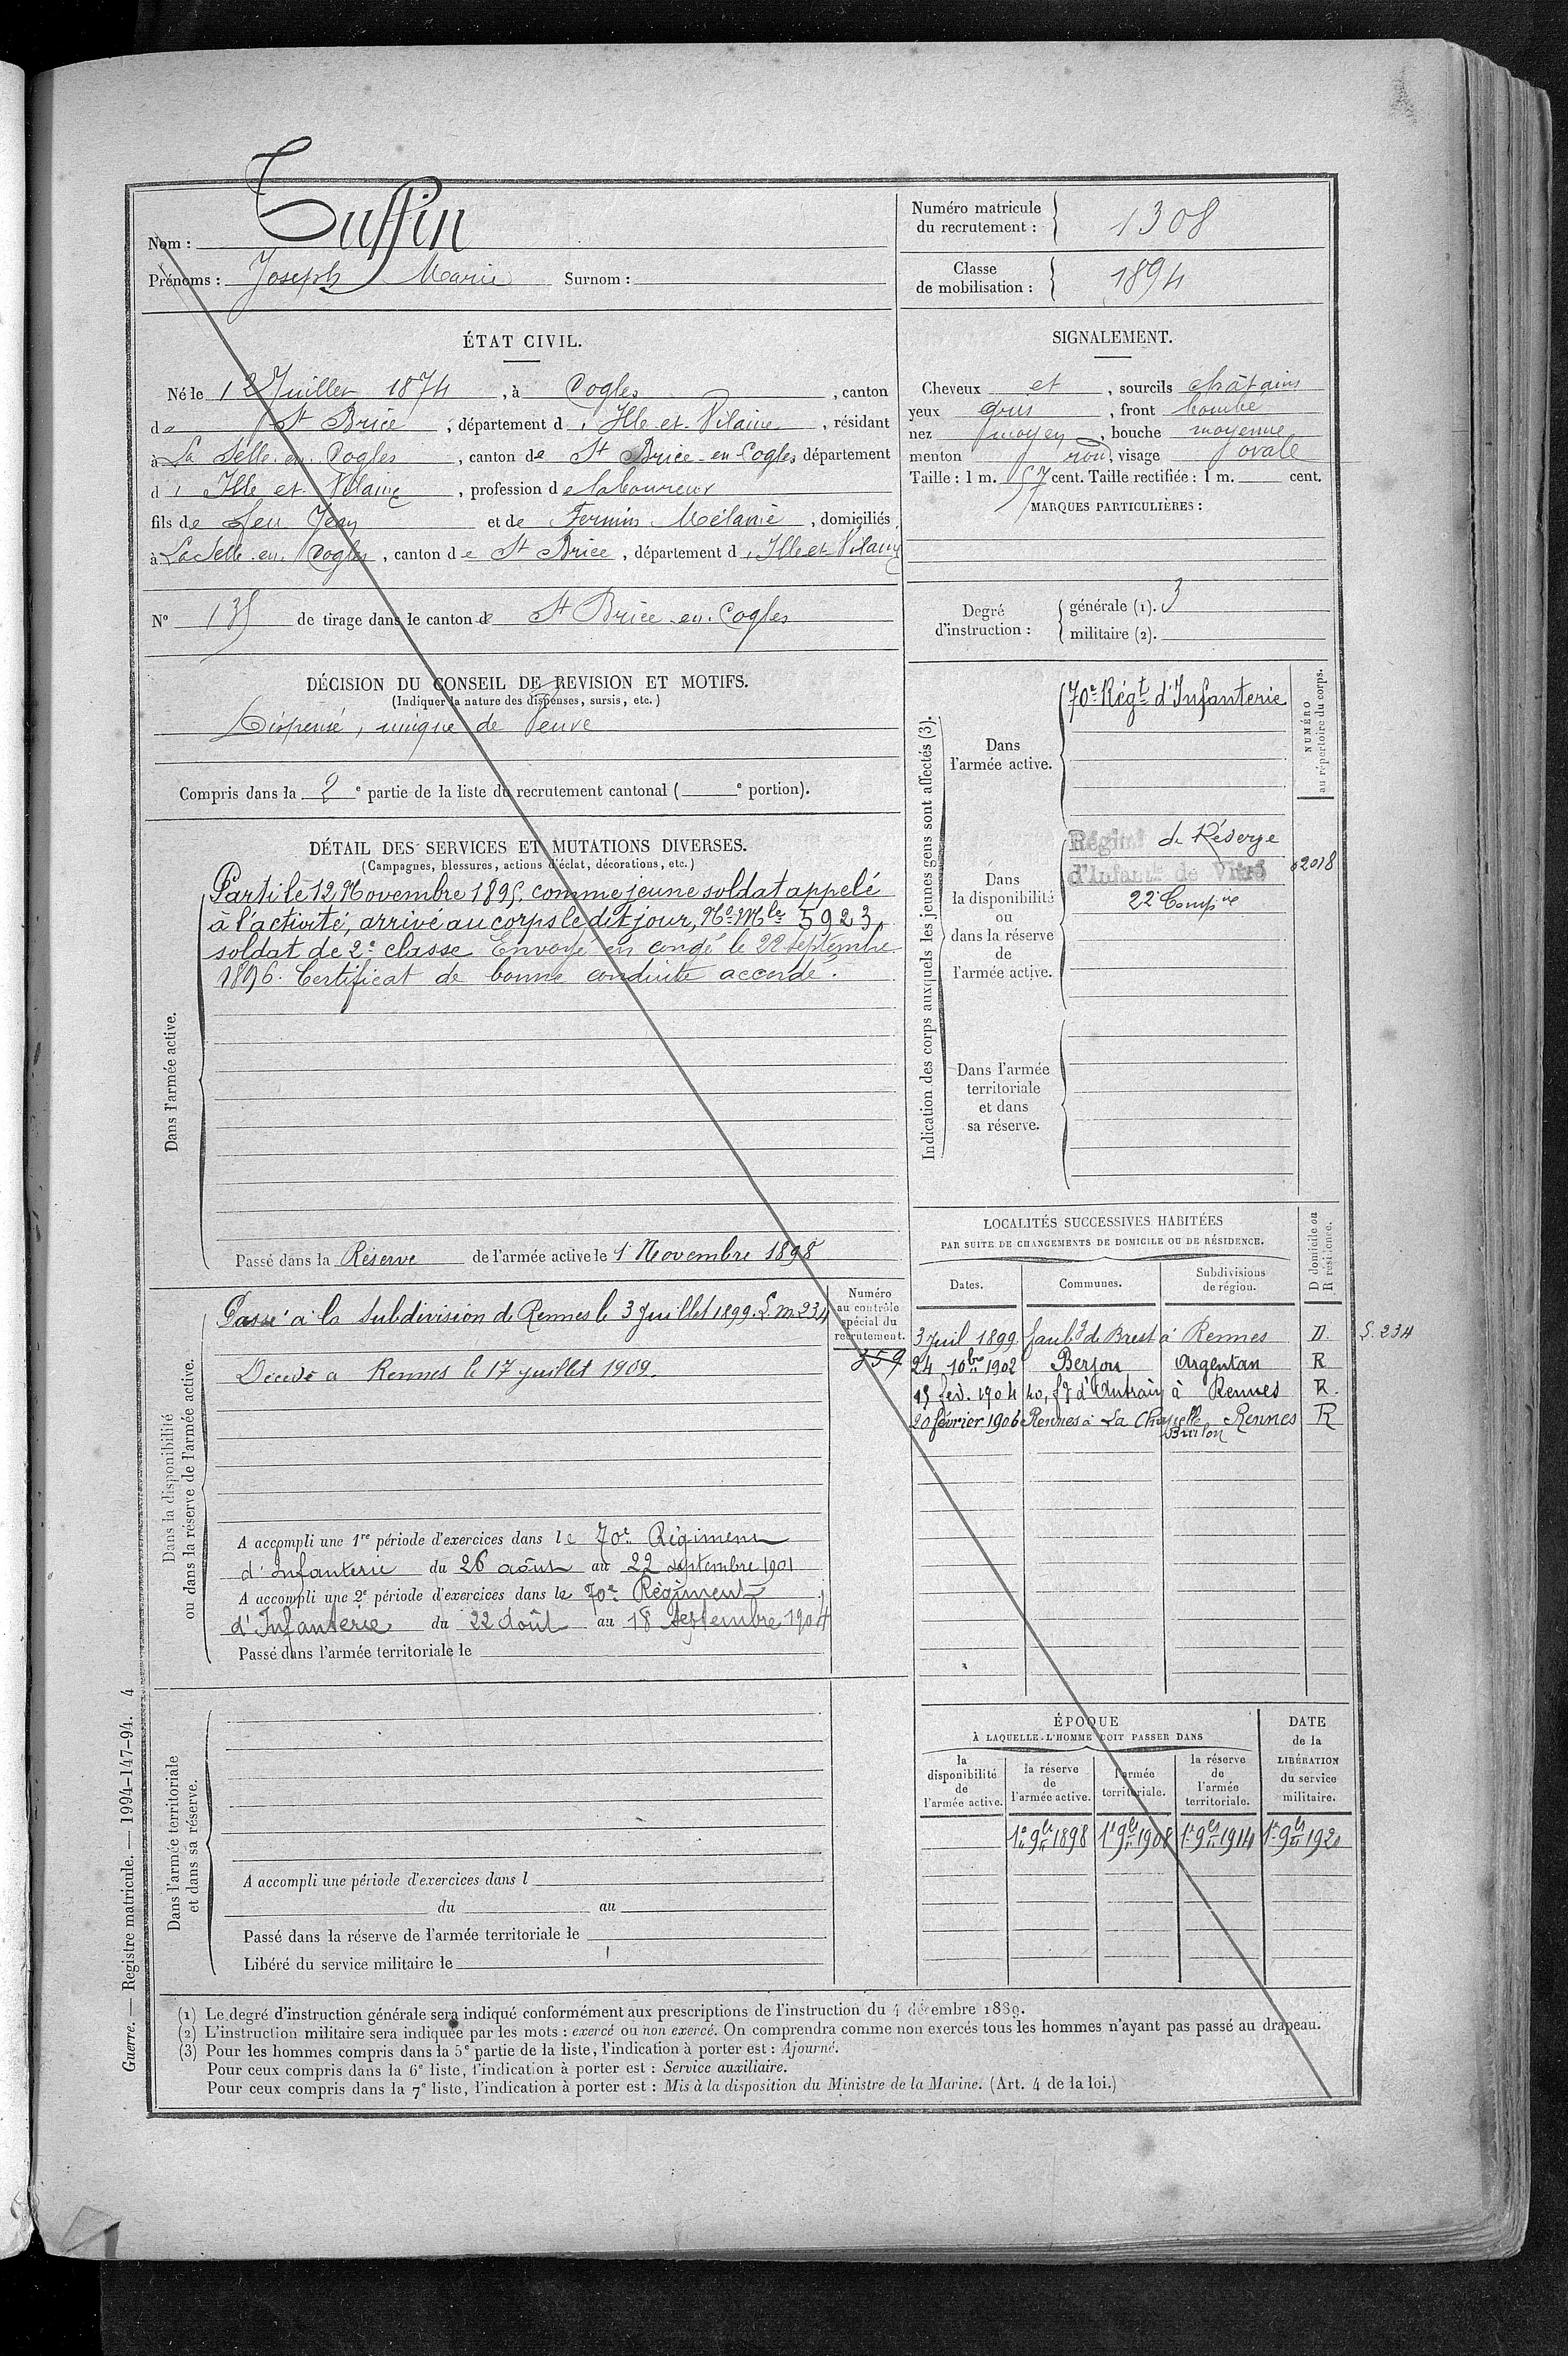 Nom : Tuffin
Prénoms : Joseph Marie Surnom :
Numéro matricule du recrutement : 1308
Classe de mobilisation : 1894
ÉTAT CIVIL.
Né le 12 Juillet 1874, à Cogles, canton
de St Brice, département d'Ille et Vilaine, résidant
à La Selle en Cogles, canton de St Brice-en-Cogles département
d'Ille et Vilaine, profession de laboureur
fils de feu Jean et de Fermin Mélanie, domiciliés
à La Selle en Cogles, canton de St Brice, département d'Ille et Vilaine
N° 135 de tirage dans le canton de St Brice en Cogles
DÉCISION DU CONSEIL DE REVISION ET MOTIFS.
(Indiquer la nature des dispenses, sursis, etc.)
Dispensé, unique de Veuve
Compris dans la 2e partie de la liste du recrutement cantonal ( e portion).
SIGNALEMENT.
Cheveux et, sourcils châtains
yeux gris, front bombé
nez moyen, bouche moyenne
menton rond, visage ovale
Taille : 1 m. 57 cent. Taille rectifiée : 1 m. cent.
MARQUES PARTICULIÈRES :
Degré d'instruction : générale (1). 3
militaire (2).
DÉTAIL DES SERVICES ET MUTATIONS DIVERSES.
(Campagnes, blessures, actions d'éclat, décorations, etc.)
Dans l'armée active.
Parti le 12 Novembre 1895, comme jeune soldat appelé
à l'activité, arrivé au corps le dit jour, No Mle 5923,
soldat de 2e classe. Envoyé en congé le 22 septembre
1896. Certificat de bonne conduite accordé.
Passé dans la Réserve de l'armée active le 1 Novembre 1898
Indication des corps auxquels les jeunes gens sont affectés (3).
NUMÉRO au répertoire du corps.
Dans l'armée active.
70e Régt d'Infanterie
Dans la disponibilité ou dans la réserve de l'armée active.
Régimt de Réserve
d'Infanterie de Vitré
22e Compie
02018
Dans l'armée territoriale et dans sa réserve.
Dans la disponibilité ou dans la réserve de l'armée active.
Numéro au contrôle spécial du recrutement.
Passé à la Subdivision de Rennes le 3 Juillet 1899. S. m. 234
Décédé à Rennes le 17 juillet 1909.
A accompli une 1re période d'exercices dans le 70e Régiment
d'Infanterie du 26 août au 22 septembre 1901
A accompli une 2e période d'exercices dans le 70e Régiment
d'Infanterie du 22 Août au 18 Septembre 1904
Passé dans l'armée territoriale le
LOCALITÉS SUCCESSIVES HABITÉES
PAR SUITE DE CHANGEMENTS DE DOMICILE OU DE RÉSIDENCE.
Dates. Communes. Subdivisions de région. D domicile ou R résidence.
3 Juil 1899 faubg de Brest à Rennes D. S. 234
24 10bre 1902 Berjou Argentan R
15 fév. 1904 40, fg d'Antrain à Rennes R.
20 février 1906 Rennes à La Chapelle Brulon Rennes R
Dans l'armée territoriale et dans sa réserve.
A accompli une période d'exercices dans l
du au
Passé dans la réserve de l'armée territoriale le
Libéré du service militaire le
ÉPOQUE
À LAQUELLE L'HOMME DOIT PASSER DANS
la disponibilité de l'armée active. la réserve de l'armée active. l'armée territoriale. la réserve de l'armée territoriale. DATE de la LIBÉRATION du service militaire.
1er 9bre 1898 1er 9bre 1908 1er 9bre 1914 1er 9bre 1920
Guerre. — Registre matricule. — 1994-147-94. 4
(1) Le degré d'instruction générale sera indiqué conformément aux prescriptions de l'instruction du 4 décembre 1889.
(2) L'instruction militaire sera indiquée par les mots : exercé ou non exercé. On comprendra comme non exercés tous les hommes n'ayant pas passé au drapeau.
(3) Pour les hommes compris dans la 5e partie de la liste, l'indication à porter est : Ajourné.
Pour ceux compris dans la 6e liste, l'indication à porter est : Service auxiliaire.
Pour ceux compris dans la 7e liste, l'indication à porter est : Mis à la disposition du Ministre de la Marine. (Art. 4 de la loi.)